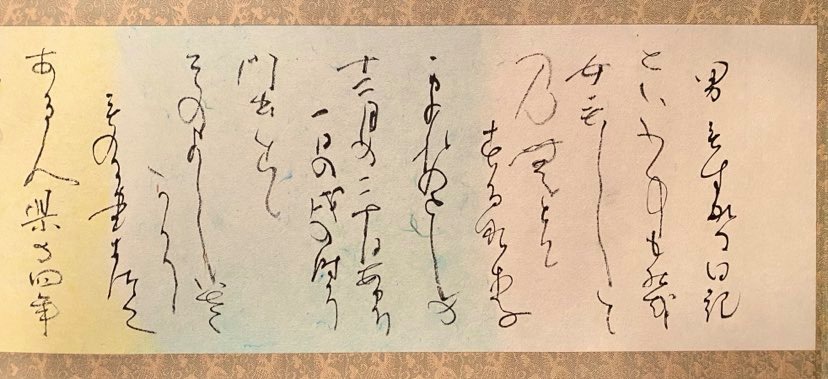 男もすなる日記
といふものを
女もして
みむとて
するなり
それのとしの
十二月の二十日あまり
一日の戌の時に
門出す
そのよしいさ
さかに
ものに書きつく
ある人県の四年